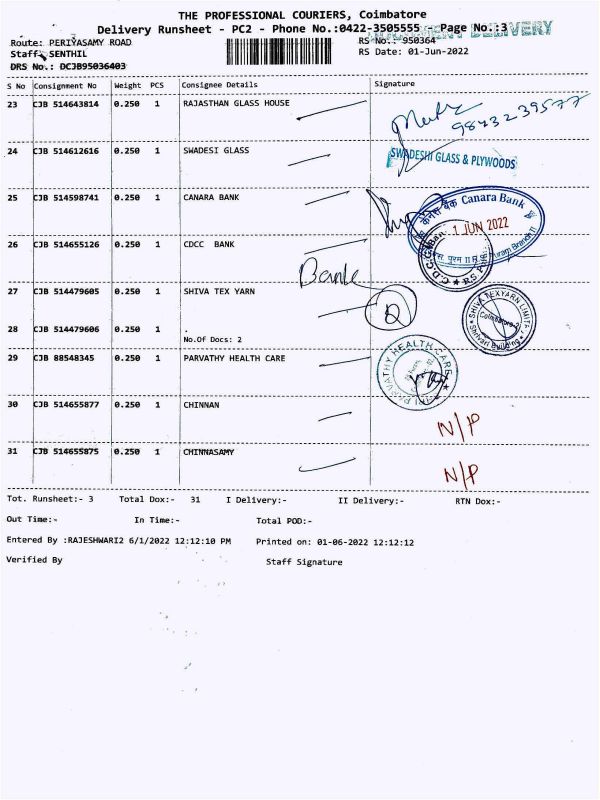 THE PROFESSIONAL COURIERS, Coimbatore
Delivery Runsheet - PC2 - Phone No.:0422-3505555 Page No.:3
DELIVERY
Route: PERIYASAMY ROAD RS No.: 950364
Staff: SENTHIL RS Date: 01-Jun-2022
DRS No.: DCJB95036403
S No Consignment No Weight PCS Consignee Details Signature
23 CJB 514643814 0.250 1 RAJASTHAN GLASS HOUSE
9843239577
24 CJB 514612616 0.250 1 SWADESI GLASS SWADESHI GLASS & PLYWOODS
25 CJB 514598741 0.250 1 CANARA BANK
केनरा बैंक Canara Bank
1 JUN 2022
26 CJB 514655126 0.250 1 CDCC BANK
Bank
27 CJB 514479605 0.250 1 SHIVA TEX YARN
SHIVA TEXYARN LIMITED
Coimbatore-2
Shivari Building
28 CJB 514479606 0.250 1 .
No.Of Docs: 2
29 CJB 88548345 0.250 1 PARVATHY HEALTH CARE
PARVATHY HEALTH CARE
30 CJB 514655877 0.250 1 CHINNAN N/P
31 CJB 514655875 0.250 1 CHINNASAMY N/P
Tot. Runsheet:- 3 Total Dox:- 31 I Delivery:- II Delivery:- RTN Dox:-
Out Time:- In Time:- Total POD:-
Entered By :RAJESHWARI2 6/1/2022 12:12:10 PM Printed on: 01-06-2022 12:12:12
Verified By Staff Signature